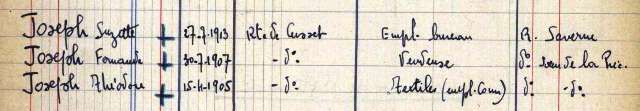 Joseph Suzette + 27.7.1913 Rte de Cusset Empl. bureau R. Saverne
Joseph Fernande + 30.7.1907 - do. Vendeuse do. de la Préc.
Joseph Théodore + 15-11-1905 - do. Textiles (empl. Com) do. - do.